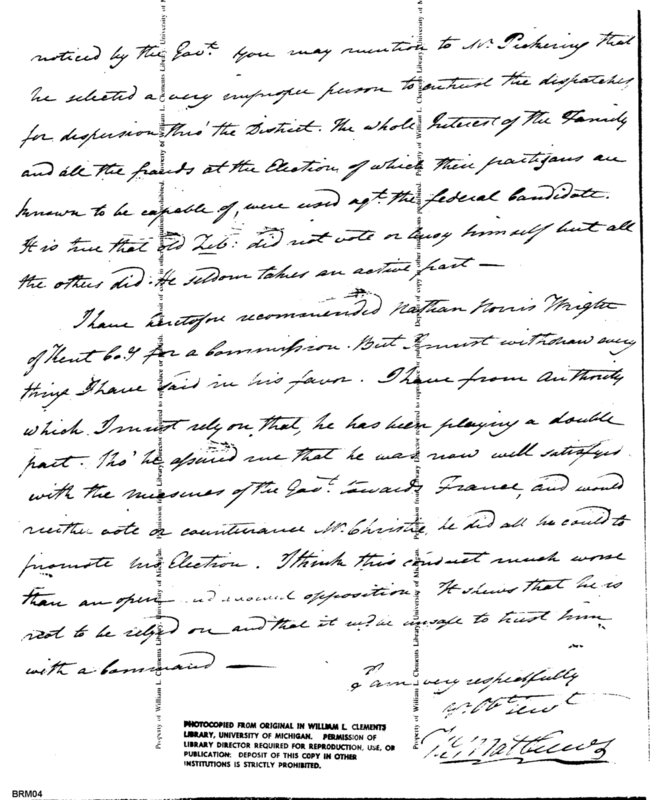 noticed by the Govt. You may mention to Mr. Pickering that
he selected a very improper person to entrust the dispatches,
for dispersion thro' the District. The whole Interest of the Family
and all the frauds at the Election of which their partizans are
known to be capable of, were used agt. the federal Candidate.
It is true that old Zeb: did not vote or busy himself but all
the others did. He seldom takes an active part —
I have heretofore recommended Nathan Norris Wright
of Kent Coy for a Commission. But I must withdraw every
thing I have said in his favor. I have from Authority
which I must rely on, that, he has been playing a double
part. Tho' he assured me that he was now well satisfyed
with the measures of the Govt. towards France, and would
neither vote or countenance Mr. Christie, he did all he could to
promote his Election. I think this conduct much worse
than an open and avowed opposition. It shews that he is
not to be relyed on and that it wd. be unsafe to trust him
with a Command —
I am very respectfully
yr. Obt. Servt
Wm. Matthews
PHOTOCOPIED FROM ORIGINAL IN WILLIAM L. CLEMENTS
LIBRARY, UNIVERSITY OF MICHIGAN. PERMISSION OF
LIBRARY DIRECTOR REQUIRED FOR REPRODUCTION, USE, OR
PUBLICATION; DEPOSIT OF THIS COPY IN OTHER
INSTITUTIONS IS STRICTLY PROHIBITED.
BRM04